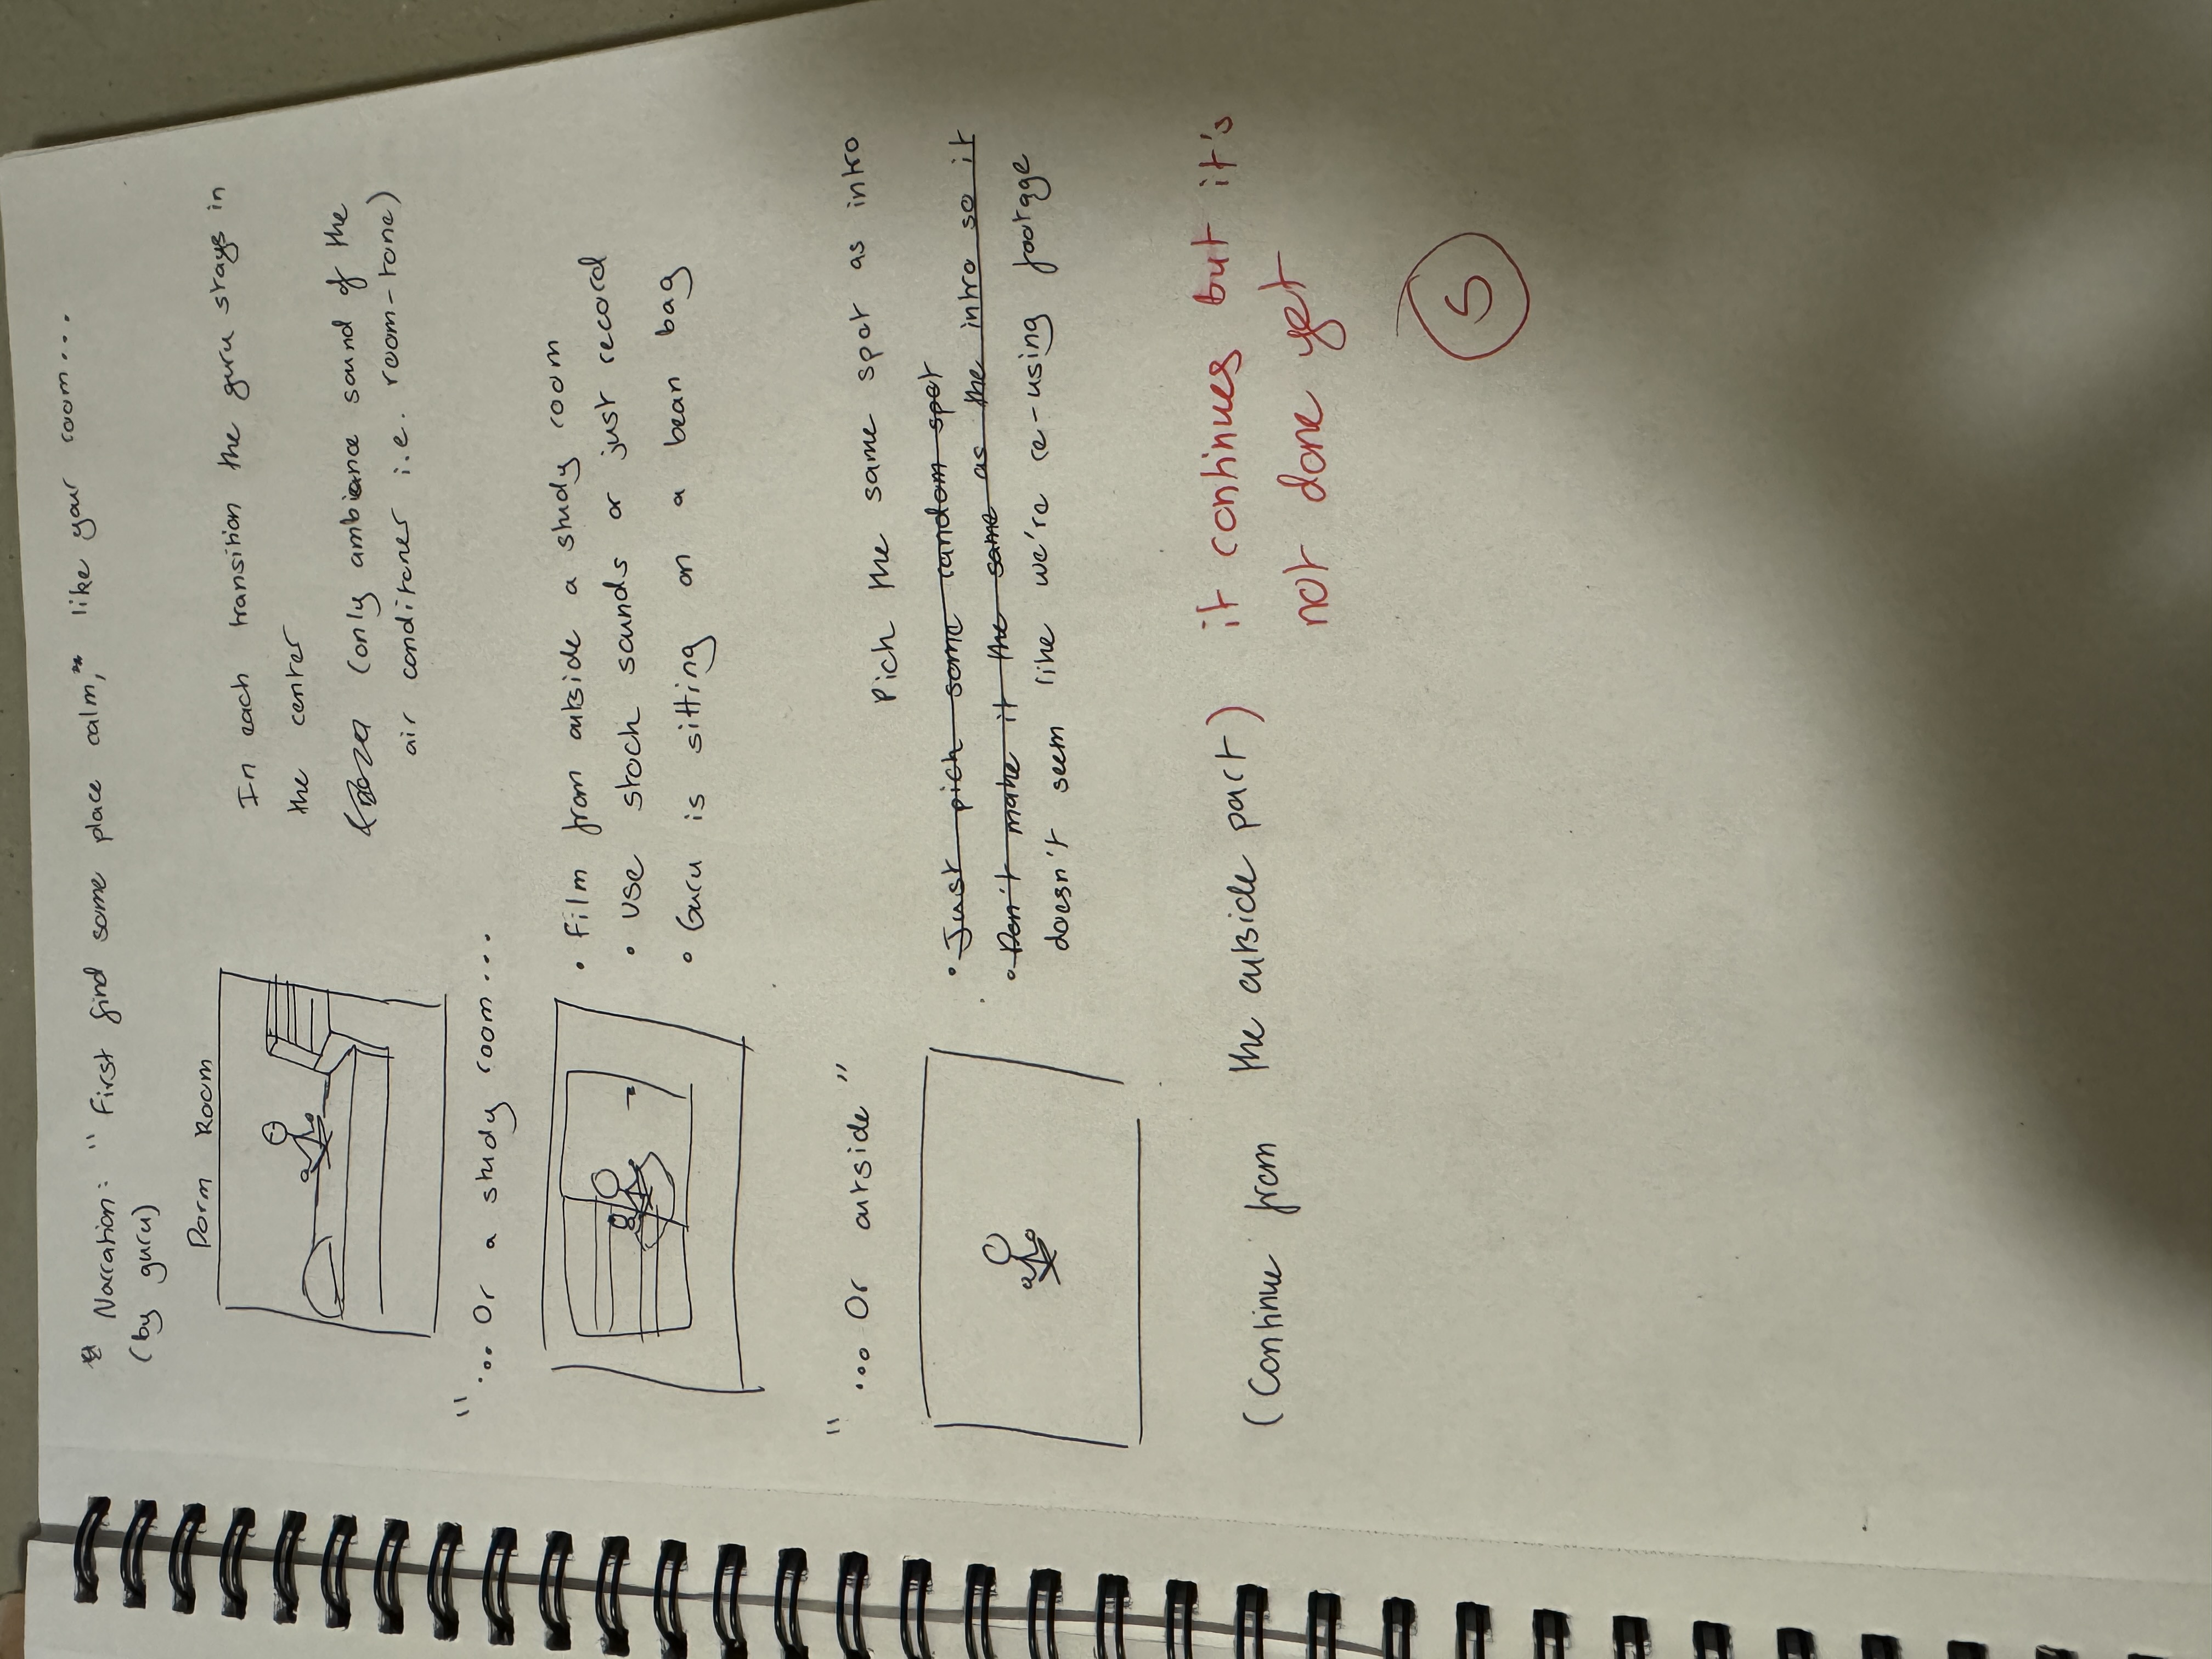 Narration: "First find some place calm," like your room...
(by guru)
Dorm Room
In each transition the guru stays in
the center
(only ambiance sound of the
air conditoner i.e. room-tone)
"... Or a study room...
• Film from outside a study room
• Use stock sounds or just record
• Guru is sitting on a bean bag
"... Or outside"
Pick the same spot as intro
• Just pick some random spot
• Don't make it the same as the intro so it
doesn't seem like we're re-using footage
(Continue from the outside part)
it continues but it's
not done yet
5